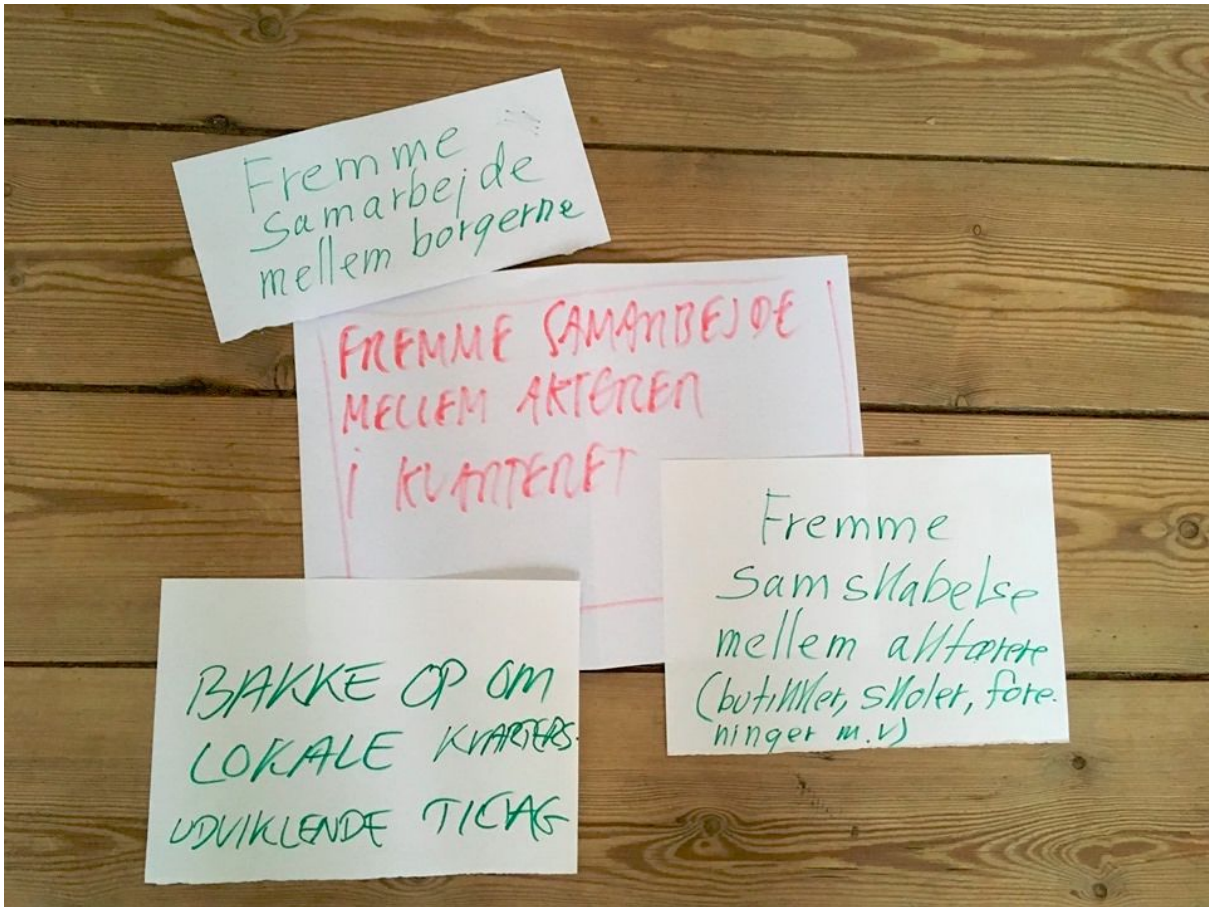 Fremme
samarbejde
mellem borgerne
FREMME SAMARBEJDE
MELLEM AKTØRER
I KVARTERET
Fremme
samskabelse
mellem aktørere
(butikker, skoler, fore-
ninger m.v)
BAKKE OP OM
LOKALE KVARTERS-
UDVIKLENDE TILTAG